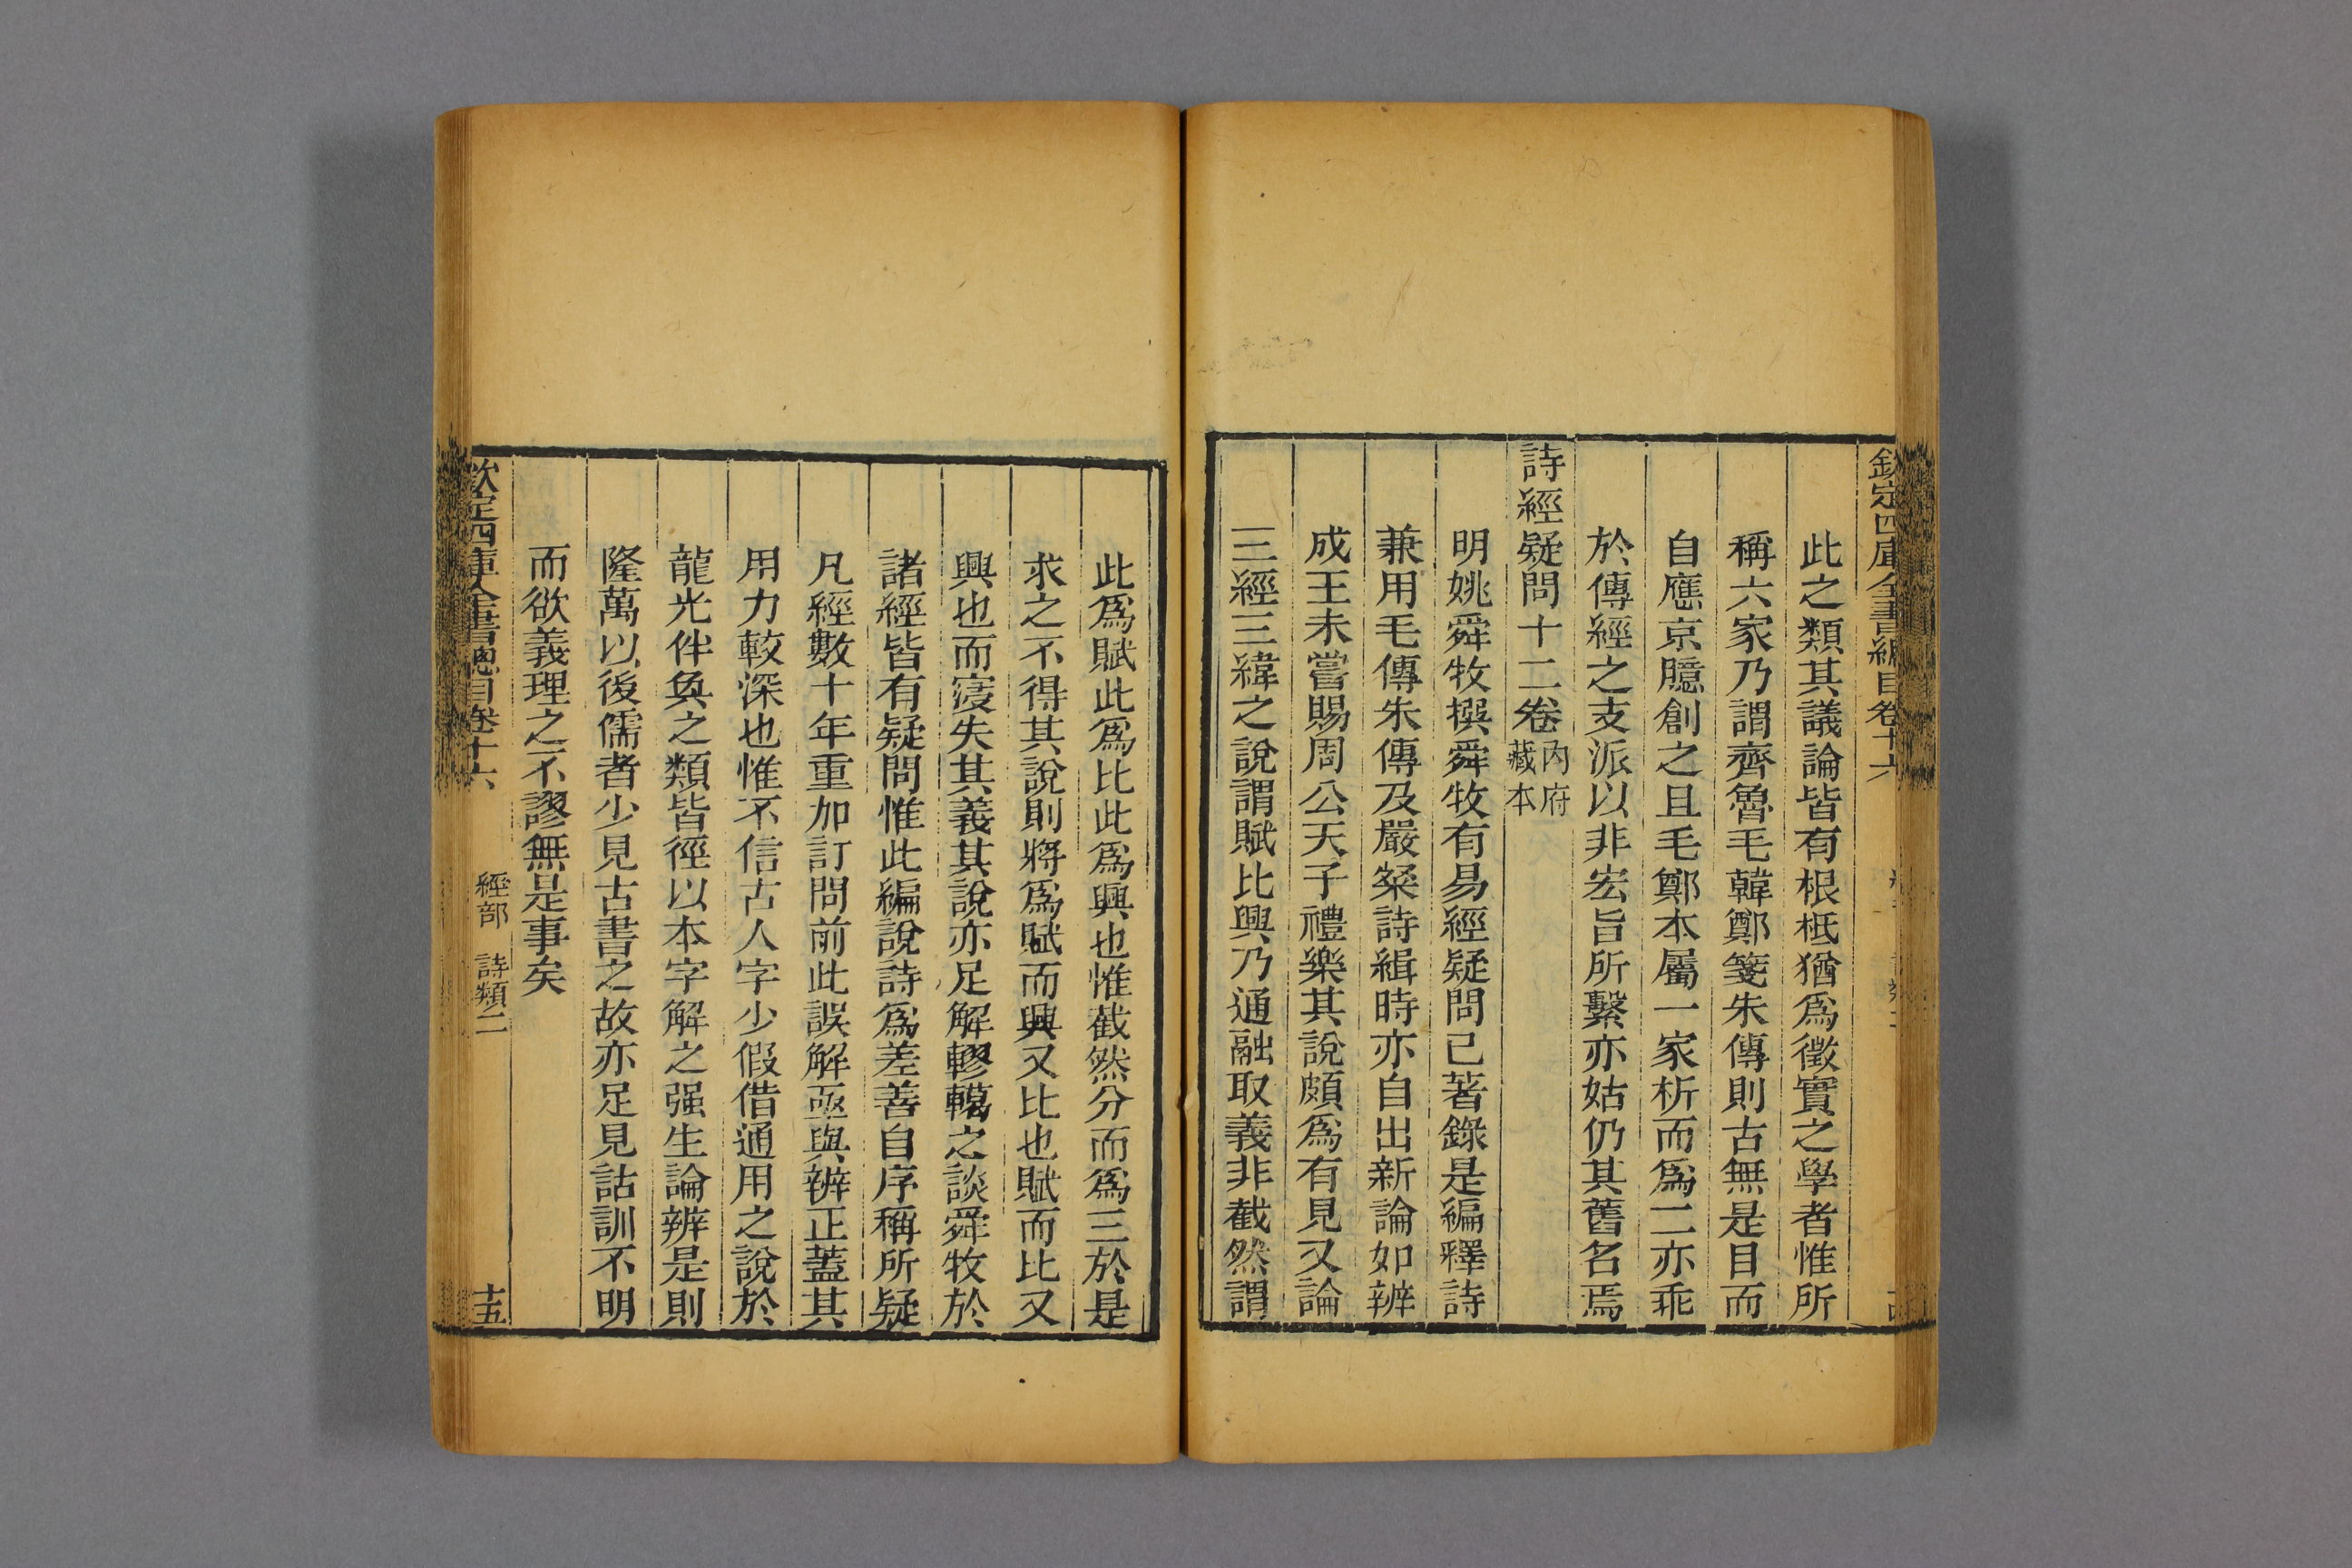 欽定四庫全書總目卷十六
此之類其議論皆有根柢猶爲徵實之學者惟所
稱六家乃謂齊魯毛韓鄭箋朱傳則古無是目而
自應京臆創之且毛鄭本屬一家析而爲二亦乖
於傳經之支派以非宏旨所繫亦姑仍其舊名焉
詩經疑問十二卷內府藏本
明姚舜牧撰舜牧有易經疑問已著錄是編釋詩
兼用毛傳朱傳及嚴粲詩緝時亦自出新論如辨
成王未嘗賜周公天子禮樂其說頗爲有見又論
三經三緯之說謂賦比興乃通融取義非截然謂
此爲賦此爲比此爲興也惟截然分而爲三於是
求之不得其說則將爲賦而興又比也賦而比又
興也而寖失其義其說亦足解轇轕之談舜牧於
諸經皆有疑問惟此編說詩爲差善自序稱所疑
凡經數十年重加訂問前此誤解亟與辨正蓋其
用力較深也惟不信古人字少假借通用之說於
龍光伴奐之類皆徑以本字解之强生論辨是則
隆萬以後儒者少見古書之故亦足見詁訓不明
而欲義理之不謬無是事矣
欽定四庫全書總目卷十六 經部 詩類二 十五